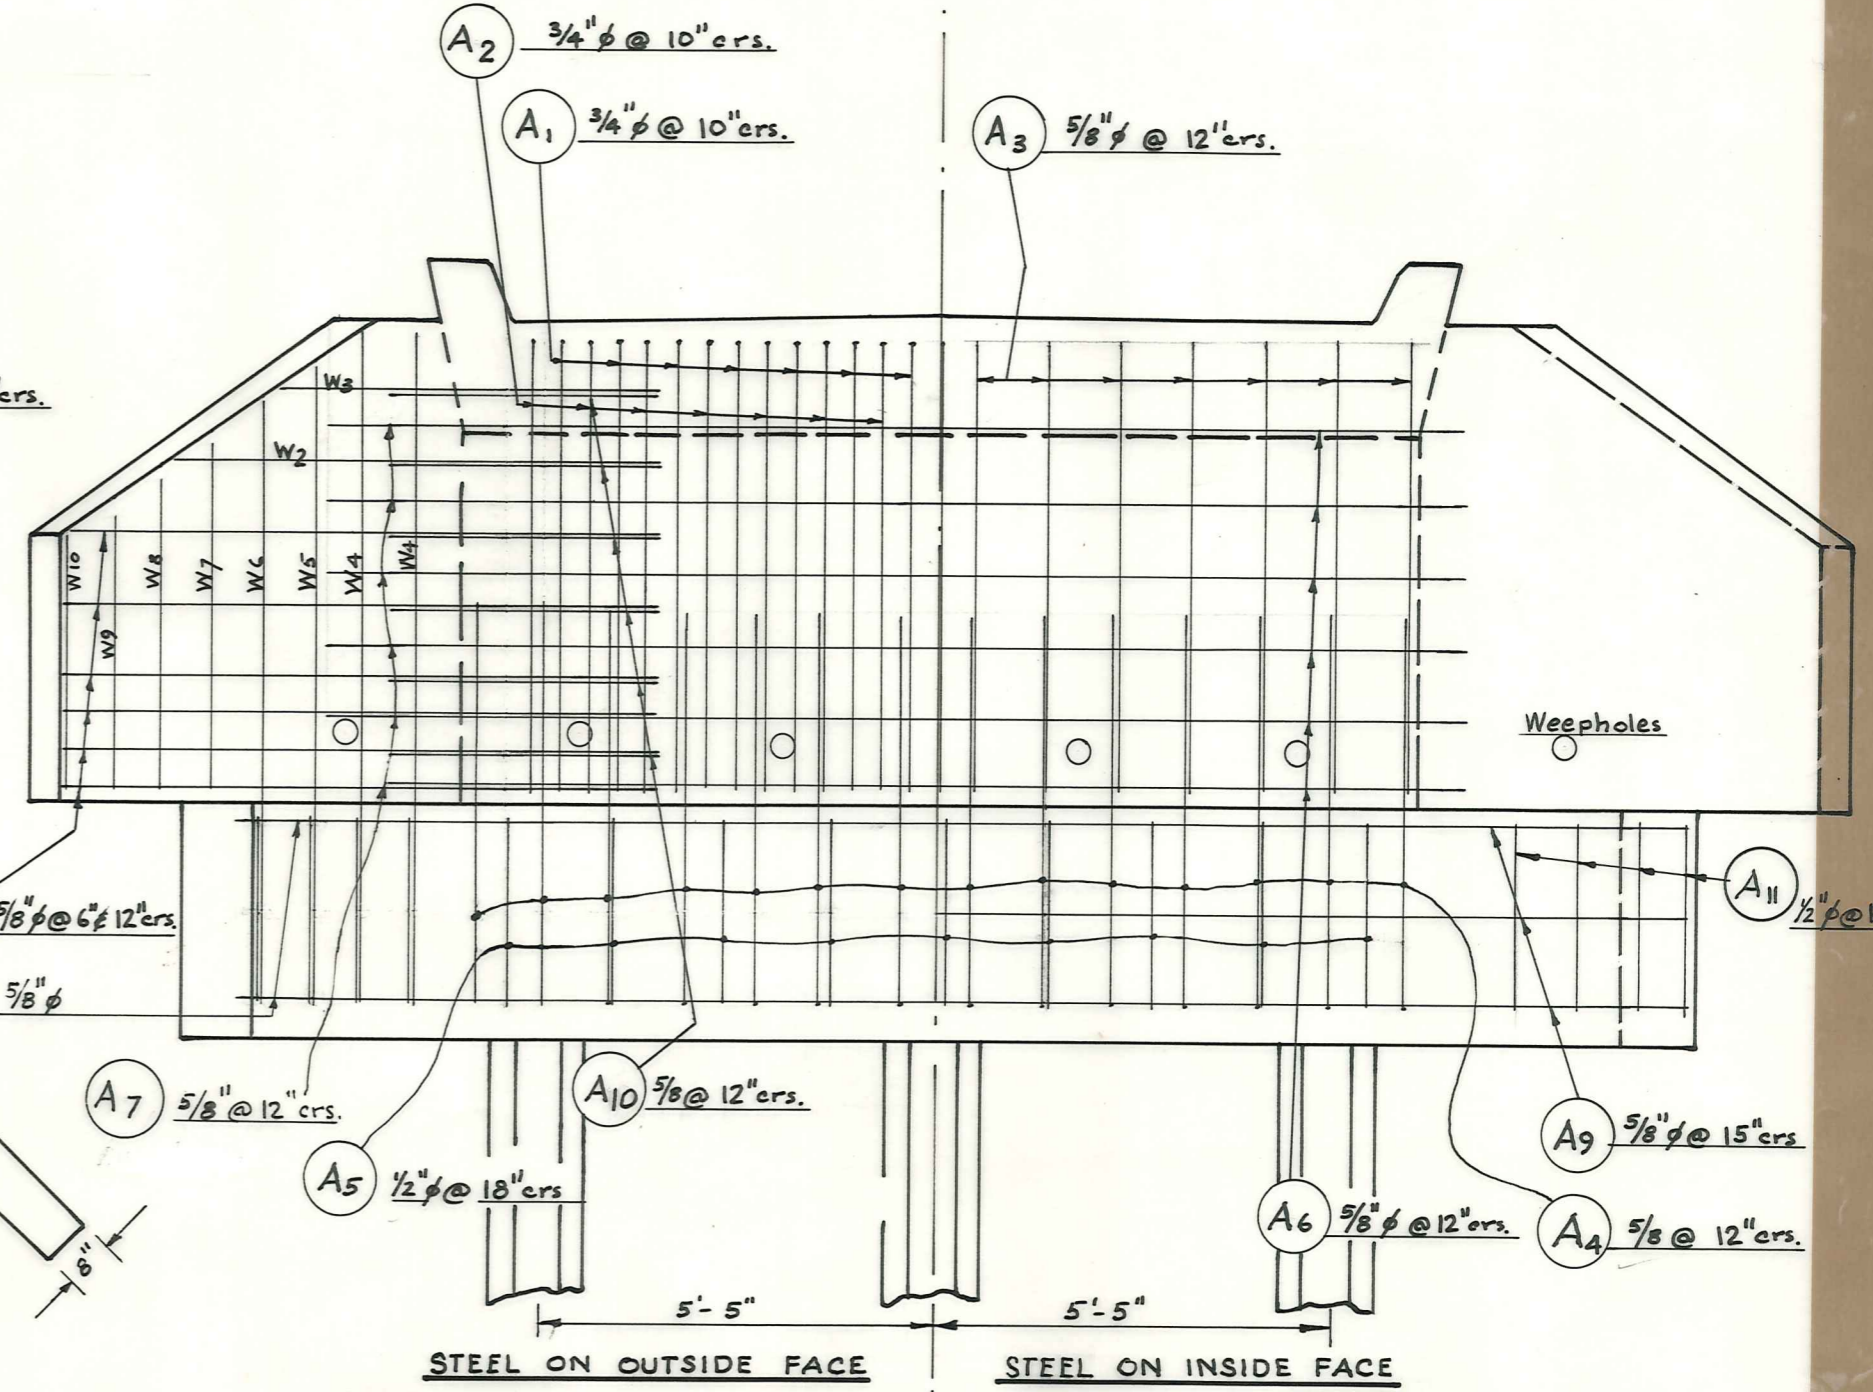 A2 3/4"ϕ @ 10"crs.
A1 3/4"ϕ @ 10"crs.
A3 5/8"ϕ @ 12"crs.
crs.
W3
W2
W10
W8
W7
W6
W5
W4
W4
W9
Weepholes
A11
1/2"ϕ@1
5/8"ϕ@ 6"& 12"crs.
5/8"ϕ
A7 5/8"@ 12"crs.
A10 5/8@ 12"crs.
A9 5/8"ϕ@ 15"crs
A5 1/2"ϕ@ 18"crs
A6 5/8"ϕ @12"crs.
A4 5/8 @ 12"crs.
8"
5'- 5"
5'- 5"
STEEL ON OUTSIDE FACE
STEEL ON INSIDE FACE